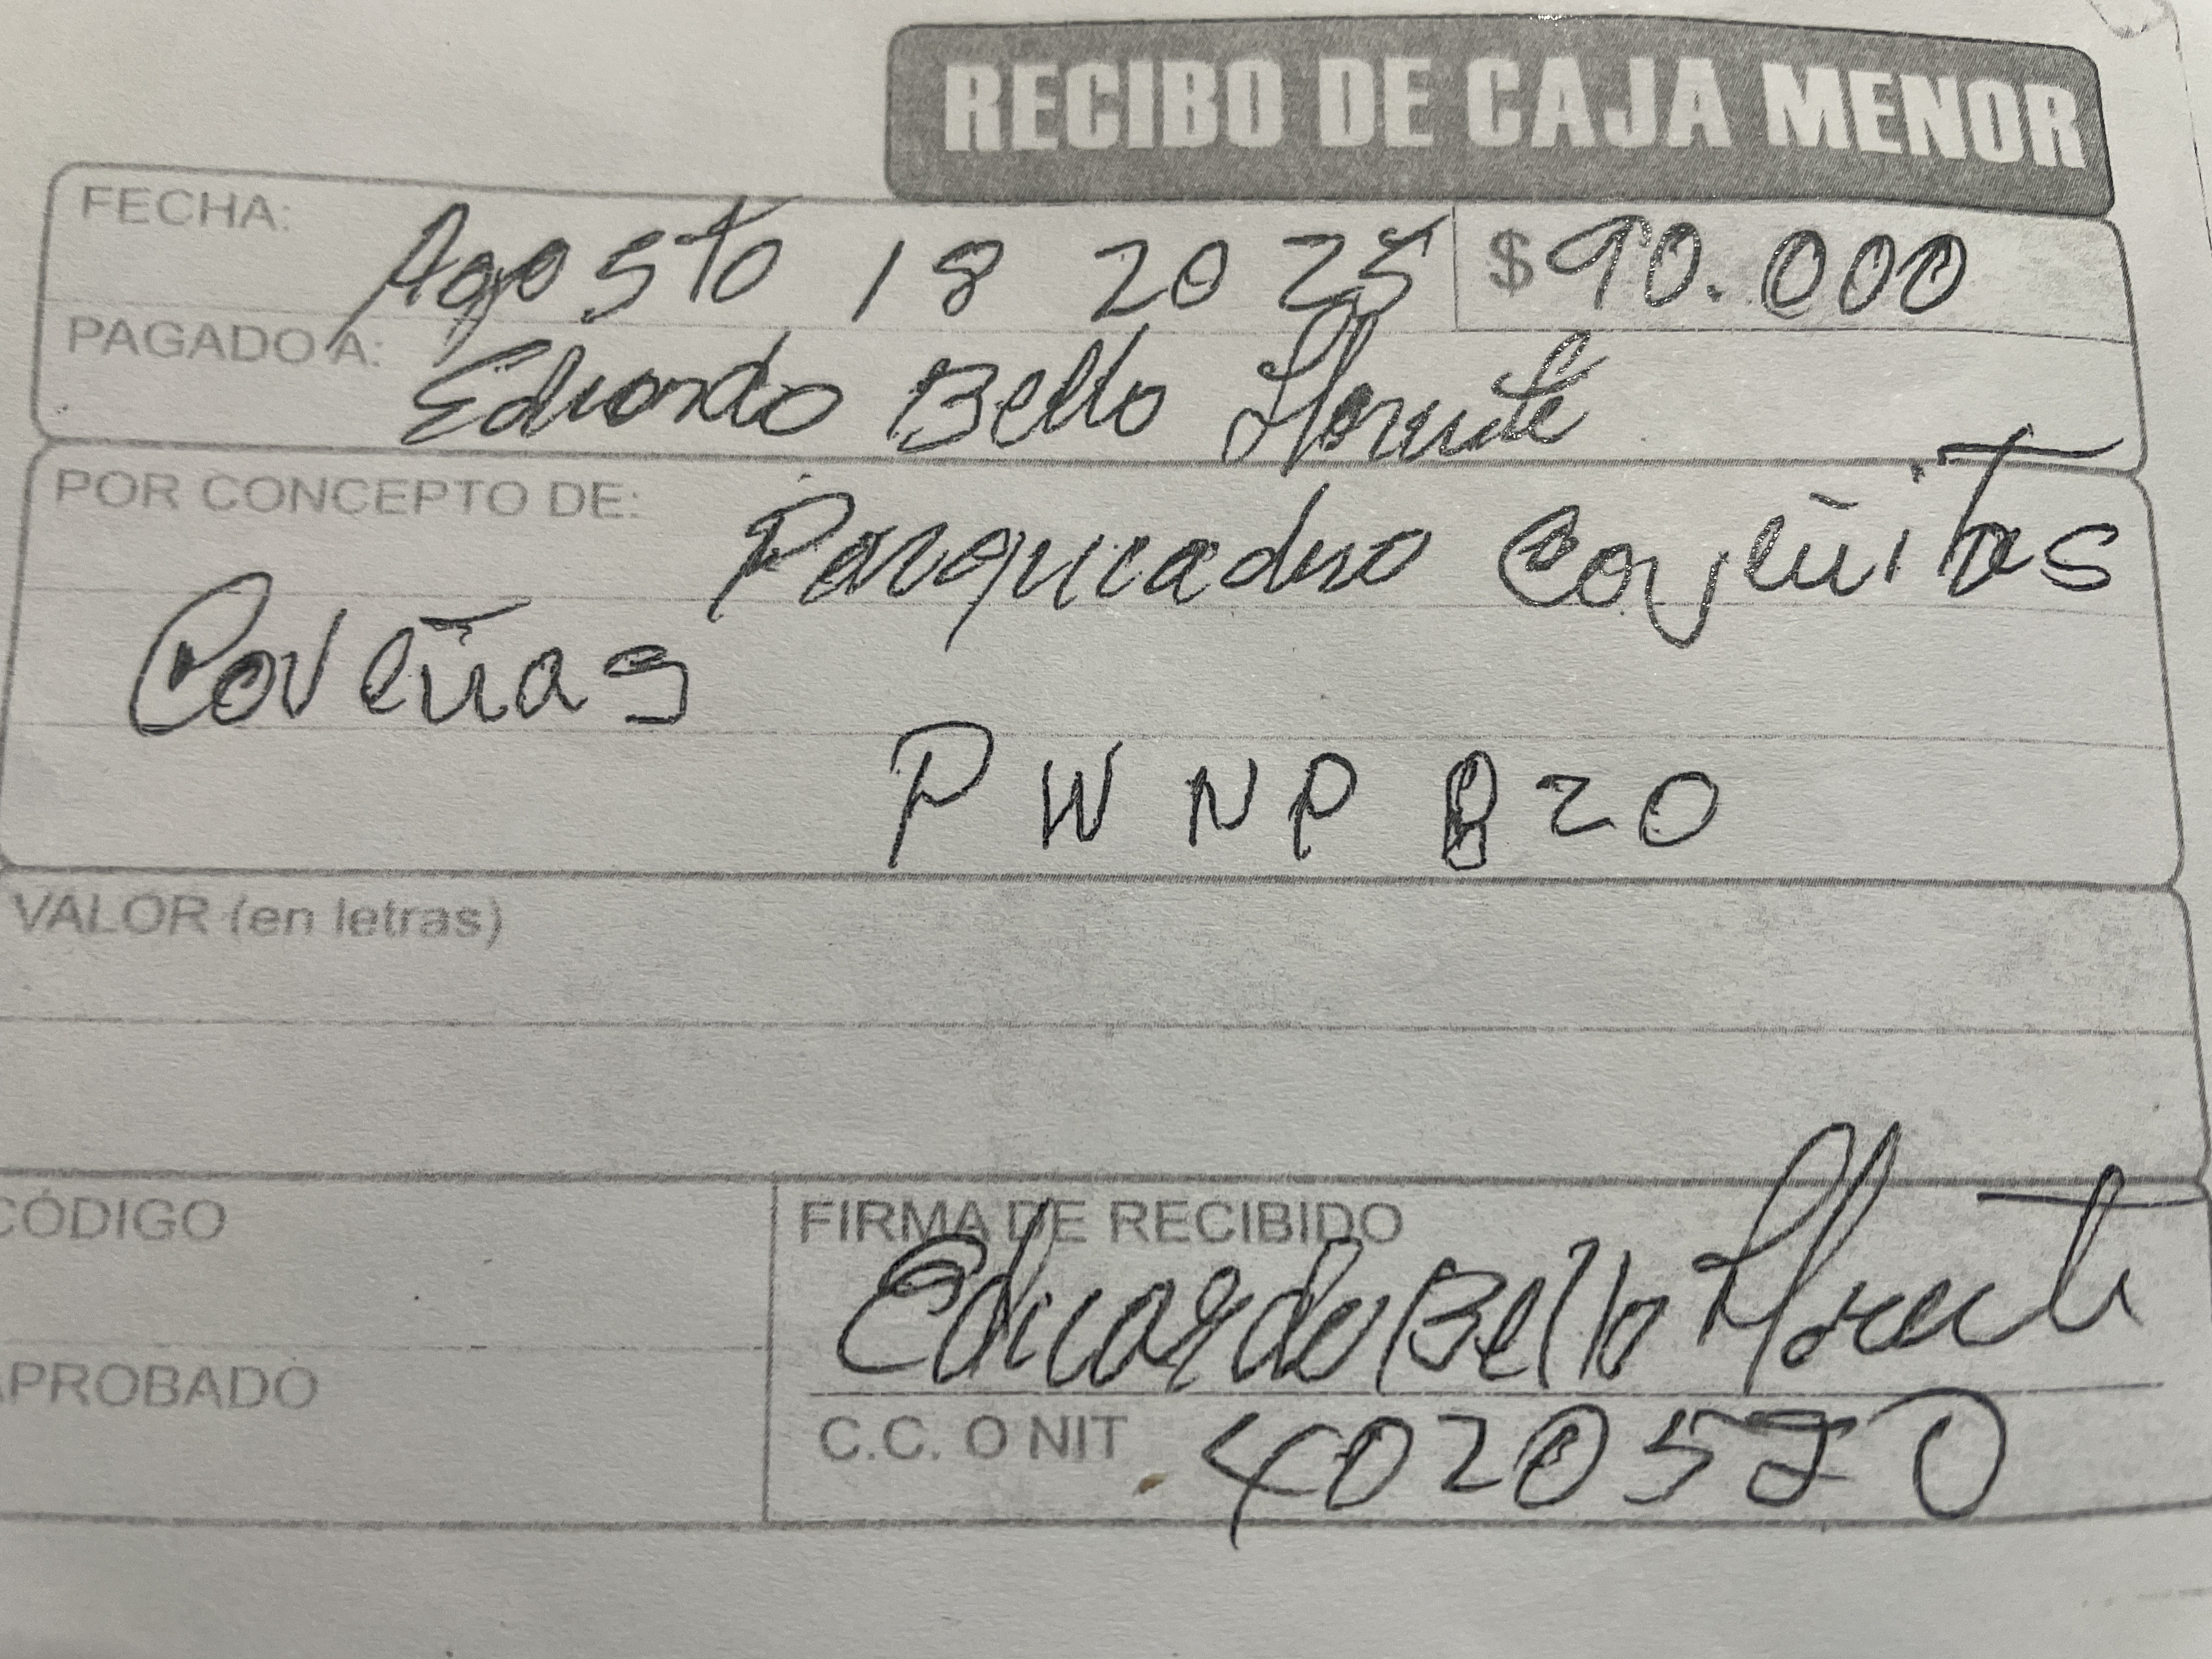 RECIBO DE CAJA MENOR
FECHA: Agosto 18 2025 $90.000
PAGADO A: Eduardo Bello Llorente
POR CONCEPTO DE: Parqueadero Coveñitas
Coveñas
P WNP 820
VALOR (en letras)
CÓDIGO
FIRMA DE RECIBIDO
Eduardo Bello Llorente
APROBADO
C.C. O NIT